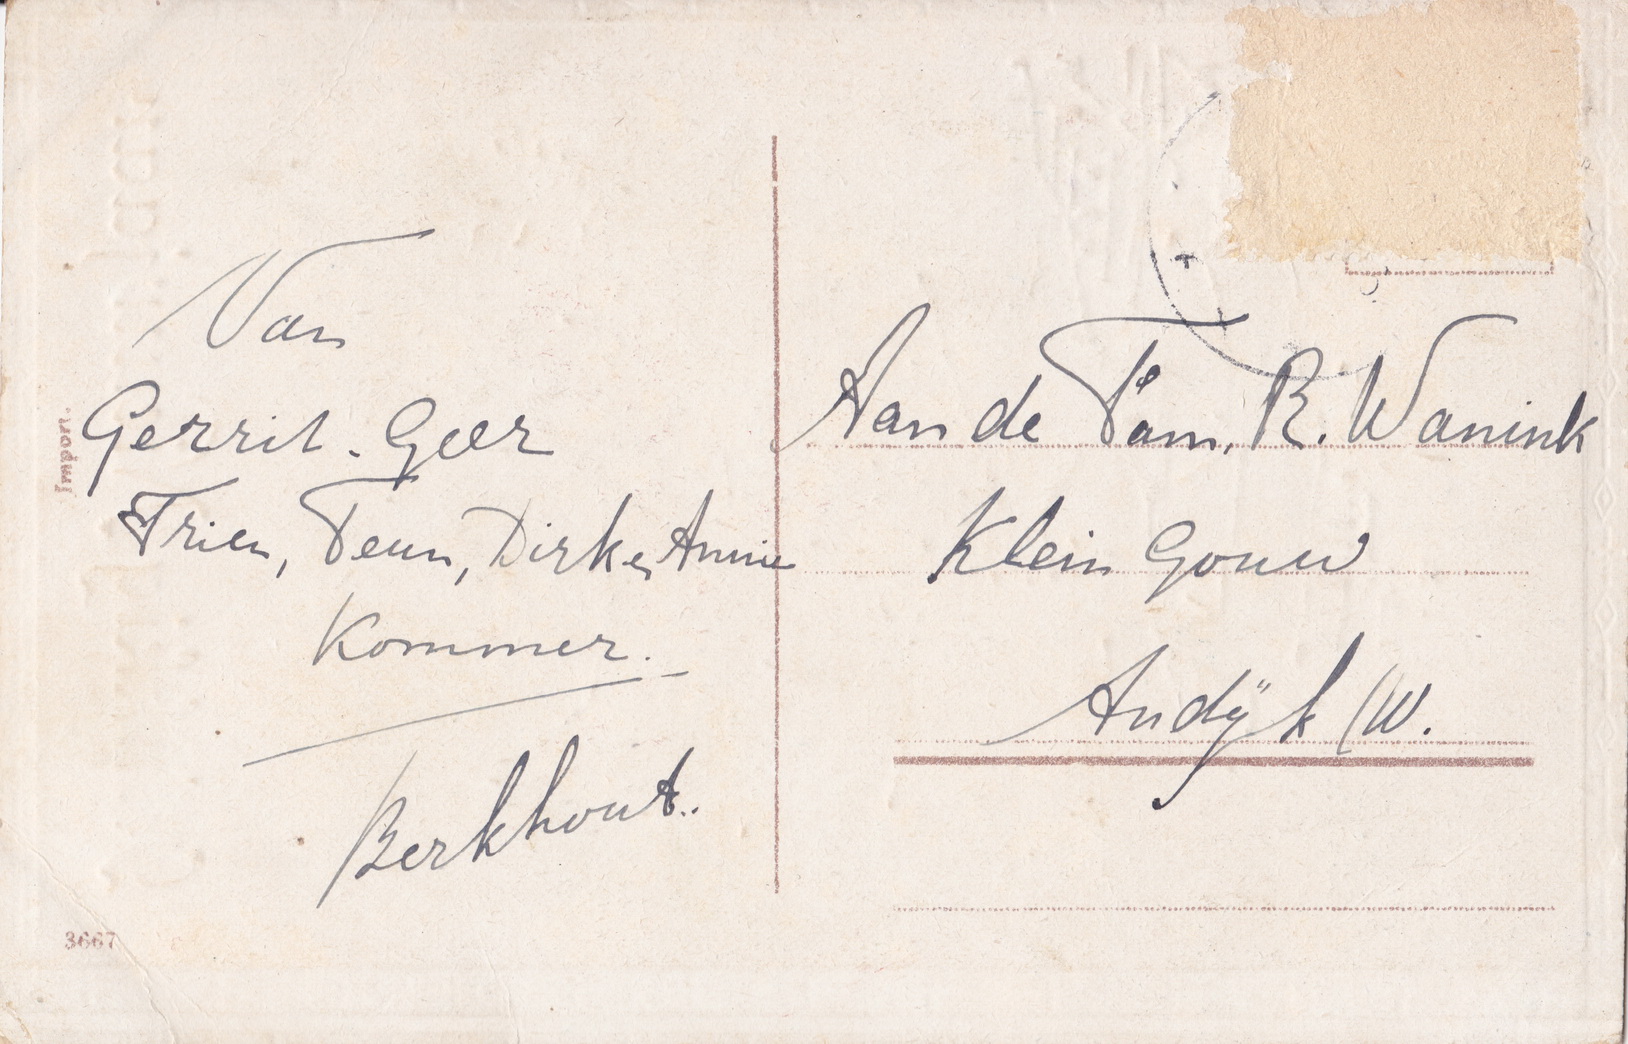 Van
Gerrit. Geer
Trien, Teun, Dirk en Annie
Kommer.
Berkhout.
Import.
3667
Aan de Fam. R. Wanink
Klein Gouw
Andijk (W.